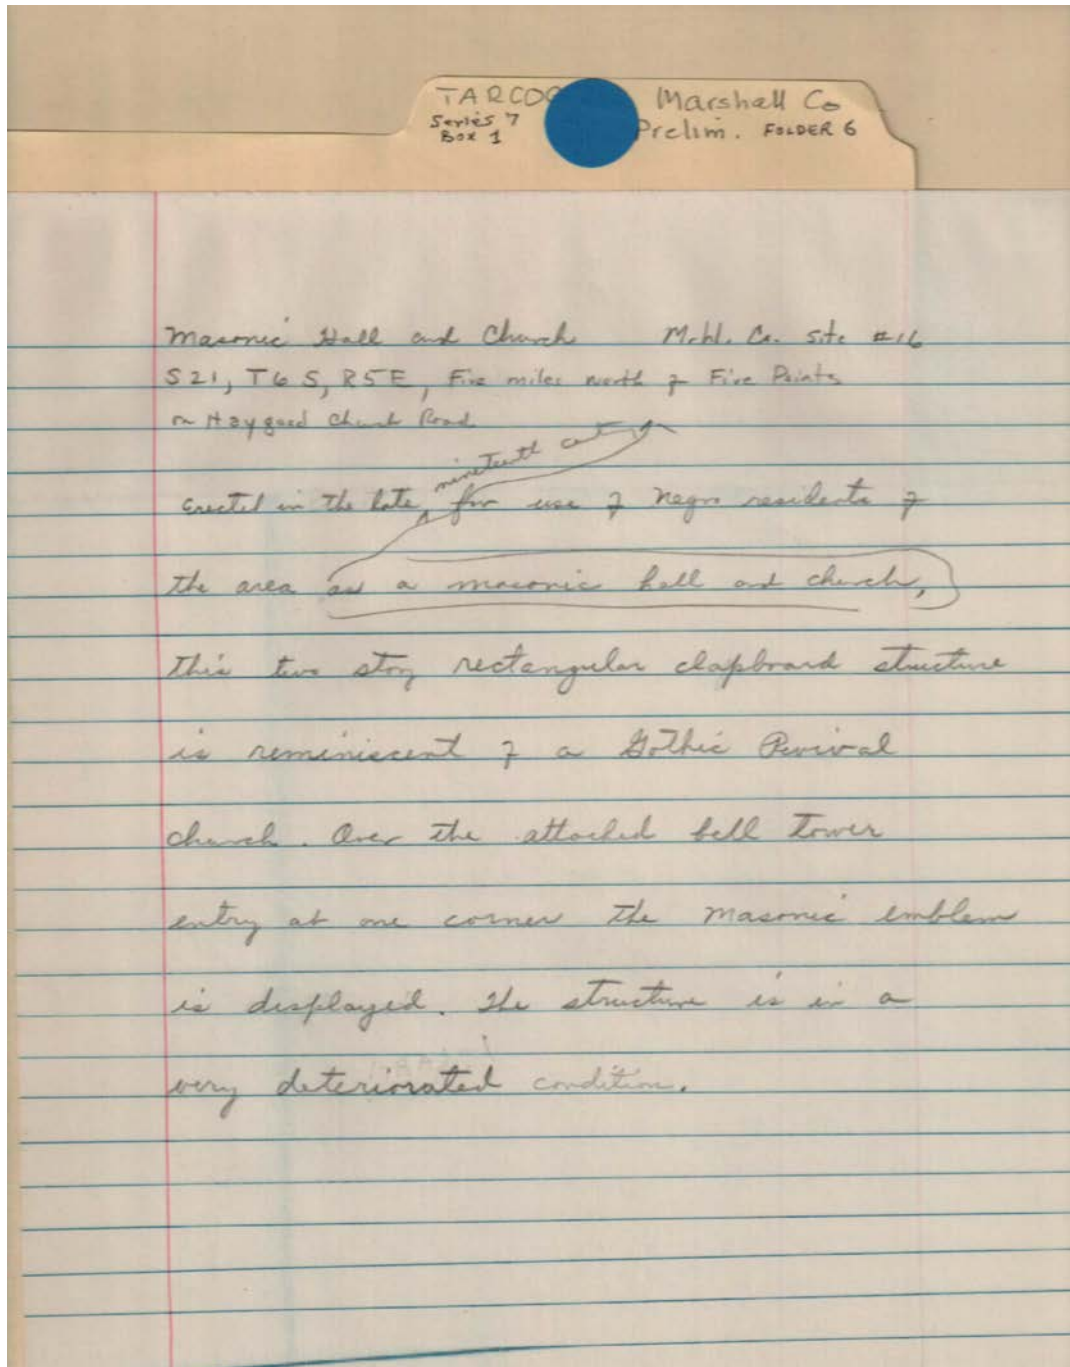 TARCOG Marshall Co
Series 7 Prelim. FOLDER 6
Box 1
Masonic Hall and Church Mrhl. Co. Site #16
S21, T6S, R5E, Five miles north of Five Points
on Haygood Church Road
nineteenth century
Erected in the late for use of Negro residents of
the area as a masonic hall and church,
this two story rectangular clapboard structure
is reminiscent of a Gothic Revival
church. Over the attached bell tower
entry at one corner the Masonic emblem
is displayed. The structure is in a
very deteriorated condition.